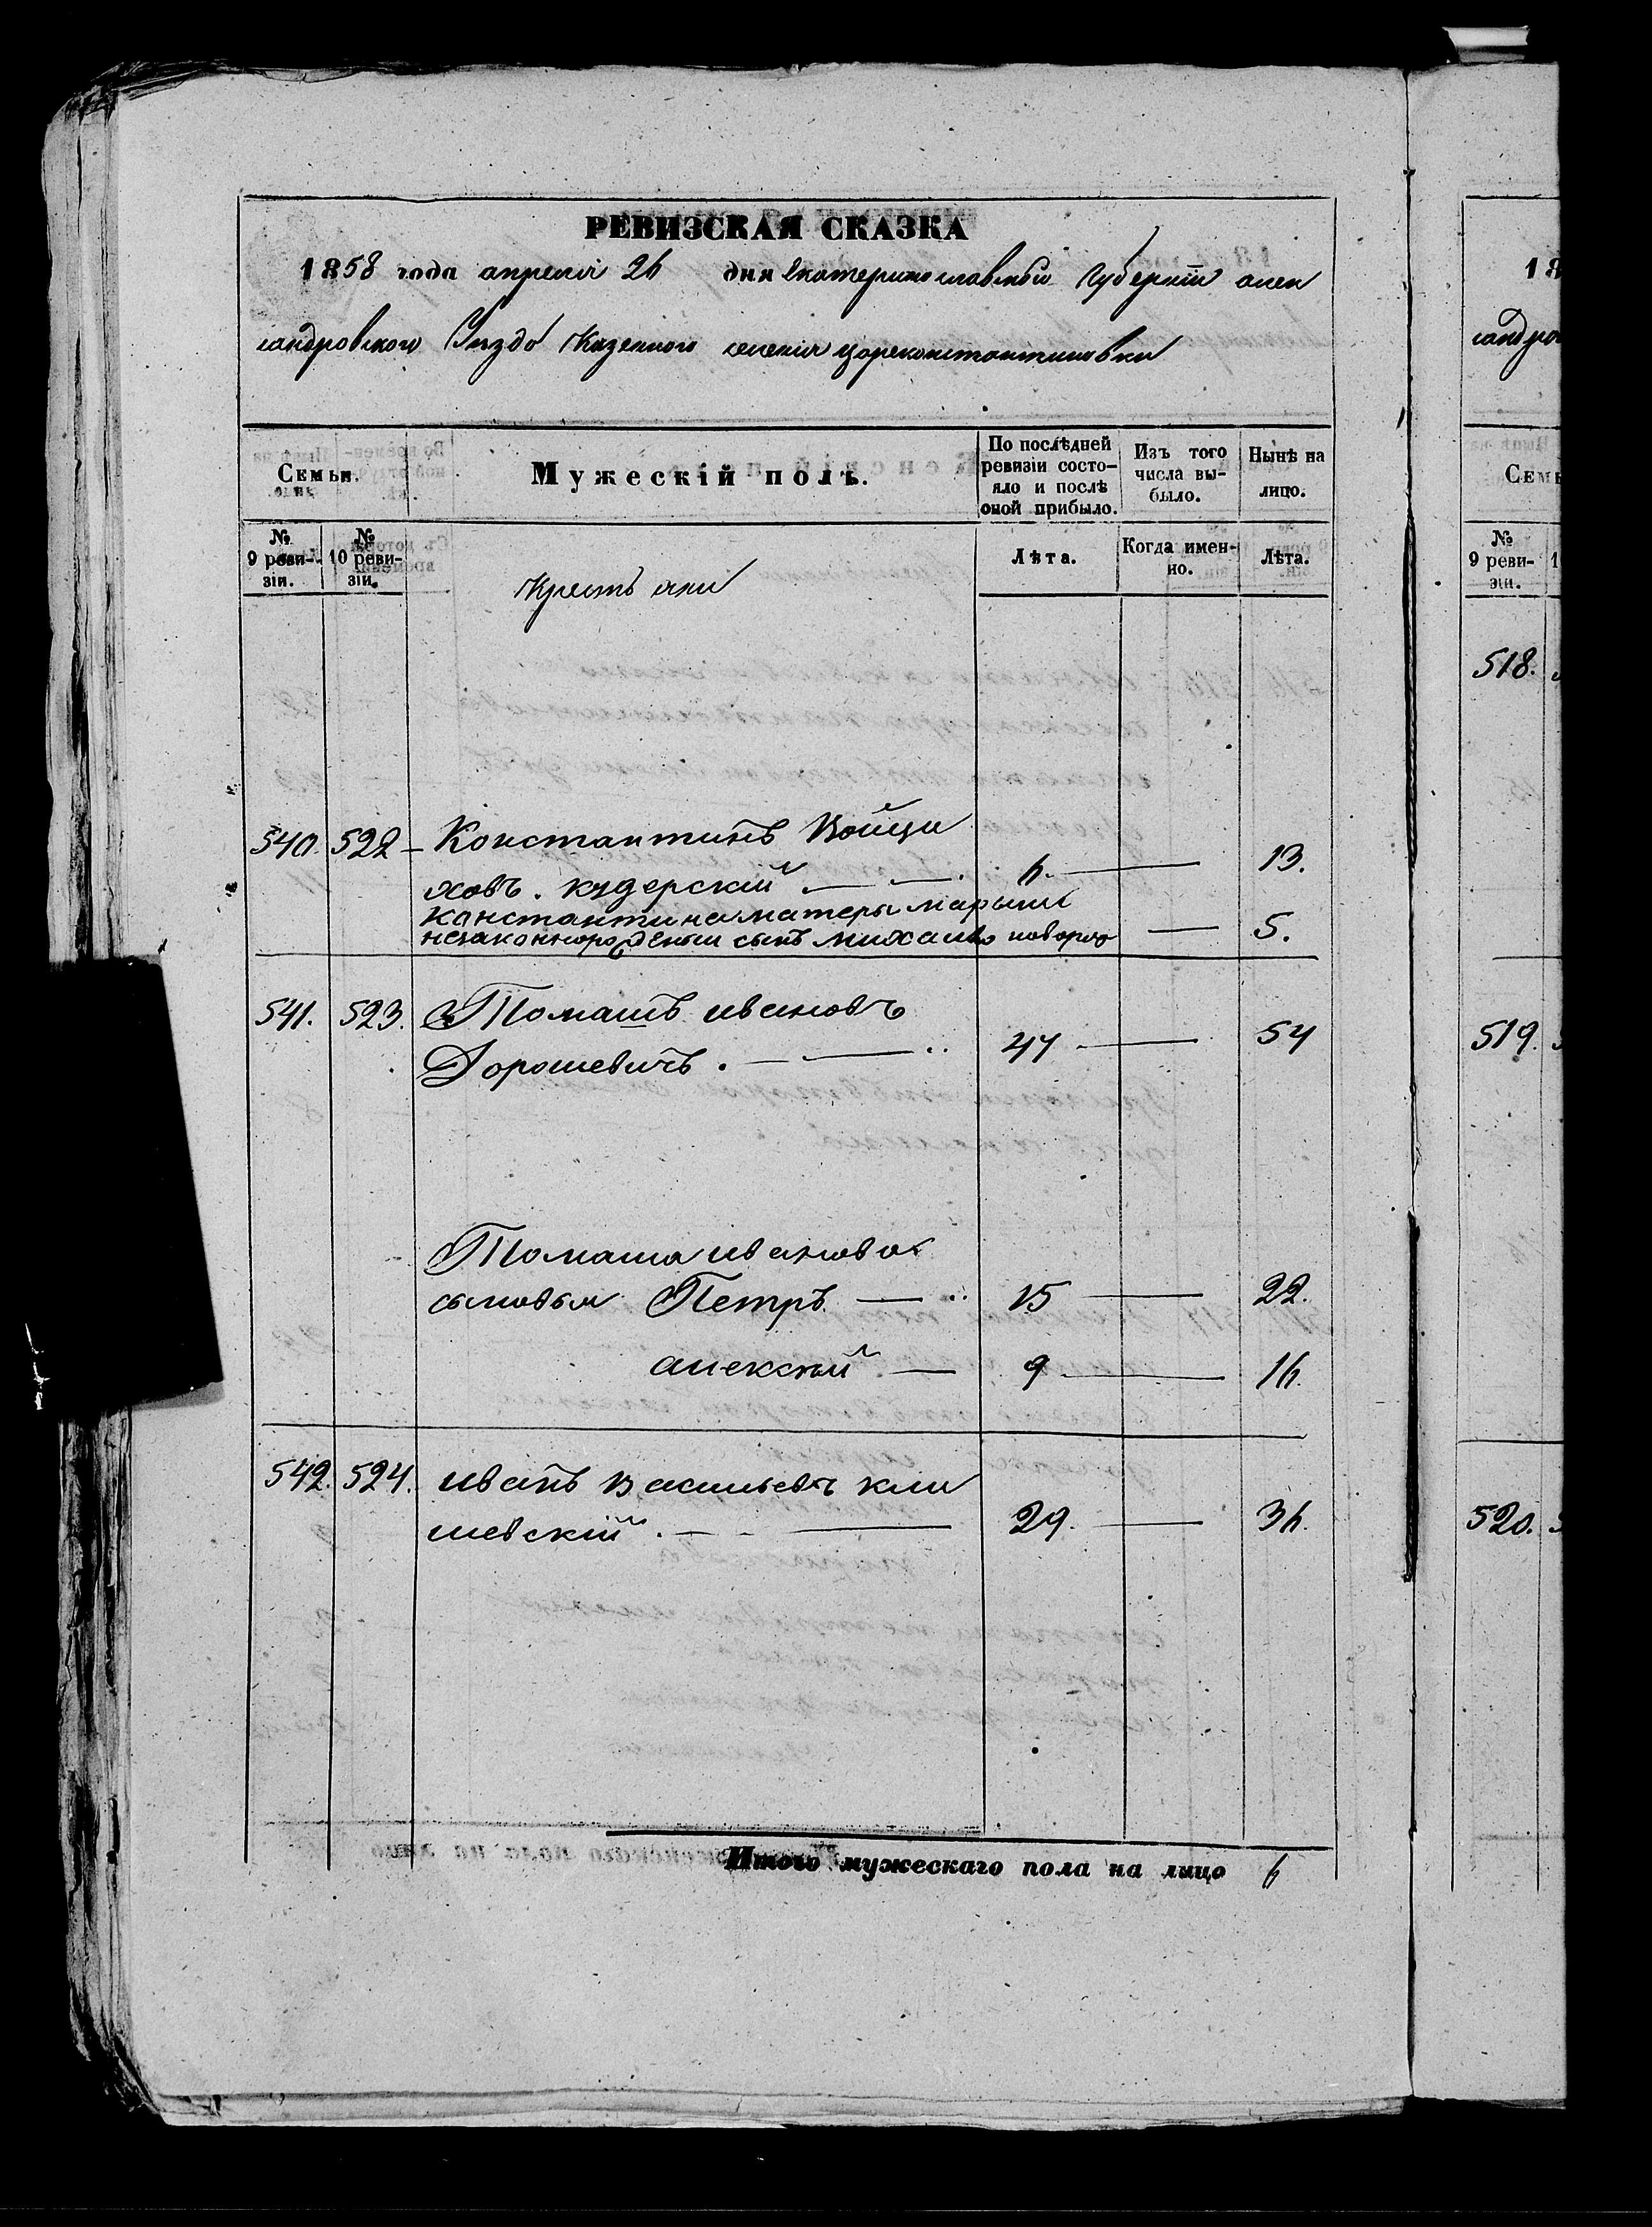 РЕВИЗСКАЯ СКАЗКА
1858 года апреля 26 дня Екатеринославской Губернiи алек
сандровского Уезда Казенного селения цареконстантиновки
Семьи.
Мужескiй полъ.
По послѣдней ревизiи состо-
яло и послѣ
оной прибыло.
Изъ того
числа вы-
было.
Нынѣ на
лицо.
№
9 реви-
зiи.
№
10 реви-
зiи.
Крестьяни
Лѣта.
Когда имен-
но.
Лѣта.
540. 522 Константинъ Войци
ховъ. кудерскiй 6. 13.
константина матеры марыны
незаконнорожденый сынъ михаило новорож 5.
541. 523. Томашъ ивановъ
Дорошевичъ. 47 54
Томаша иванова
сыновья Петръ 15 22.
алексѣй 9 16.
542. 524. иванъ васильевъ кли
шевскiй. 29. 36.
Итого мужескаго пола на лицо 6
18
сандро
Семь
№
9 реви-
зiи.
518.
519.
520.